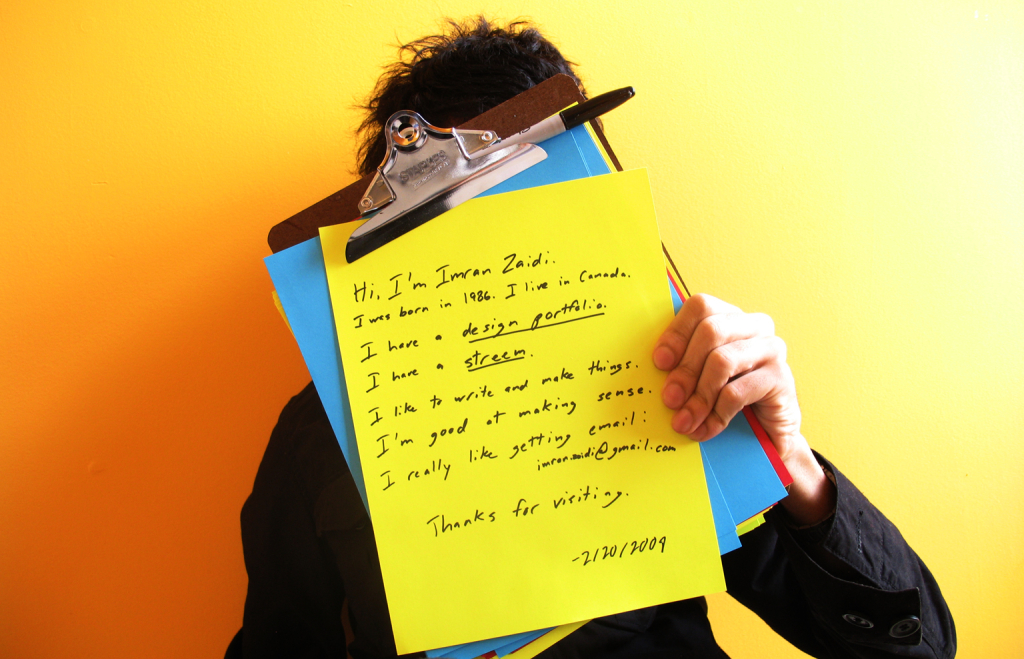 Hi, I'm Imran Zaidi.
I was born in 1986. I live in Canada.
I have a design portfolio.
I have a streem.
I like to write and make things.
I'm good at making sense.
I really like getting email:
imran.zaidi@gmail.com
Thanks for visiting.
-2/20/2009